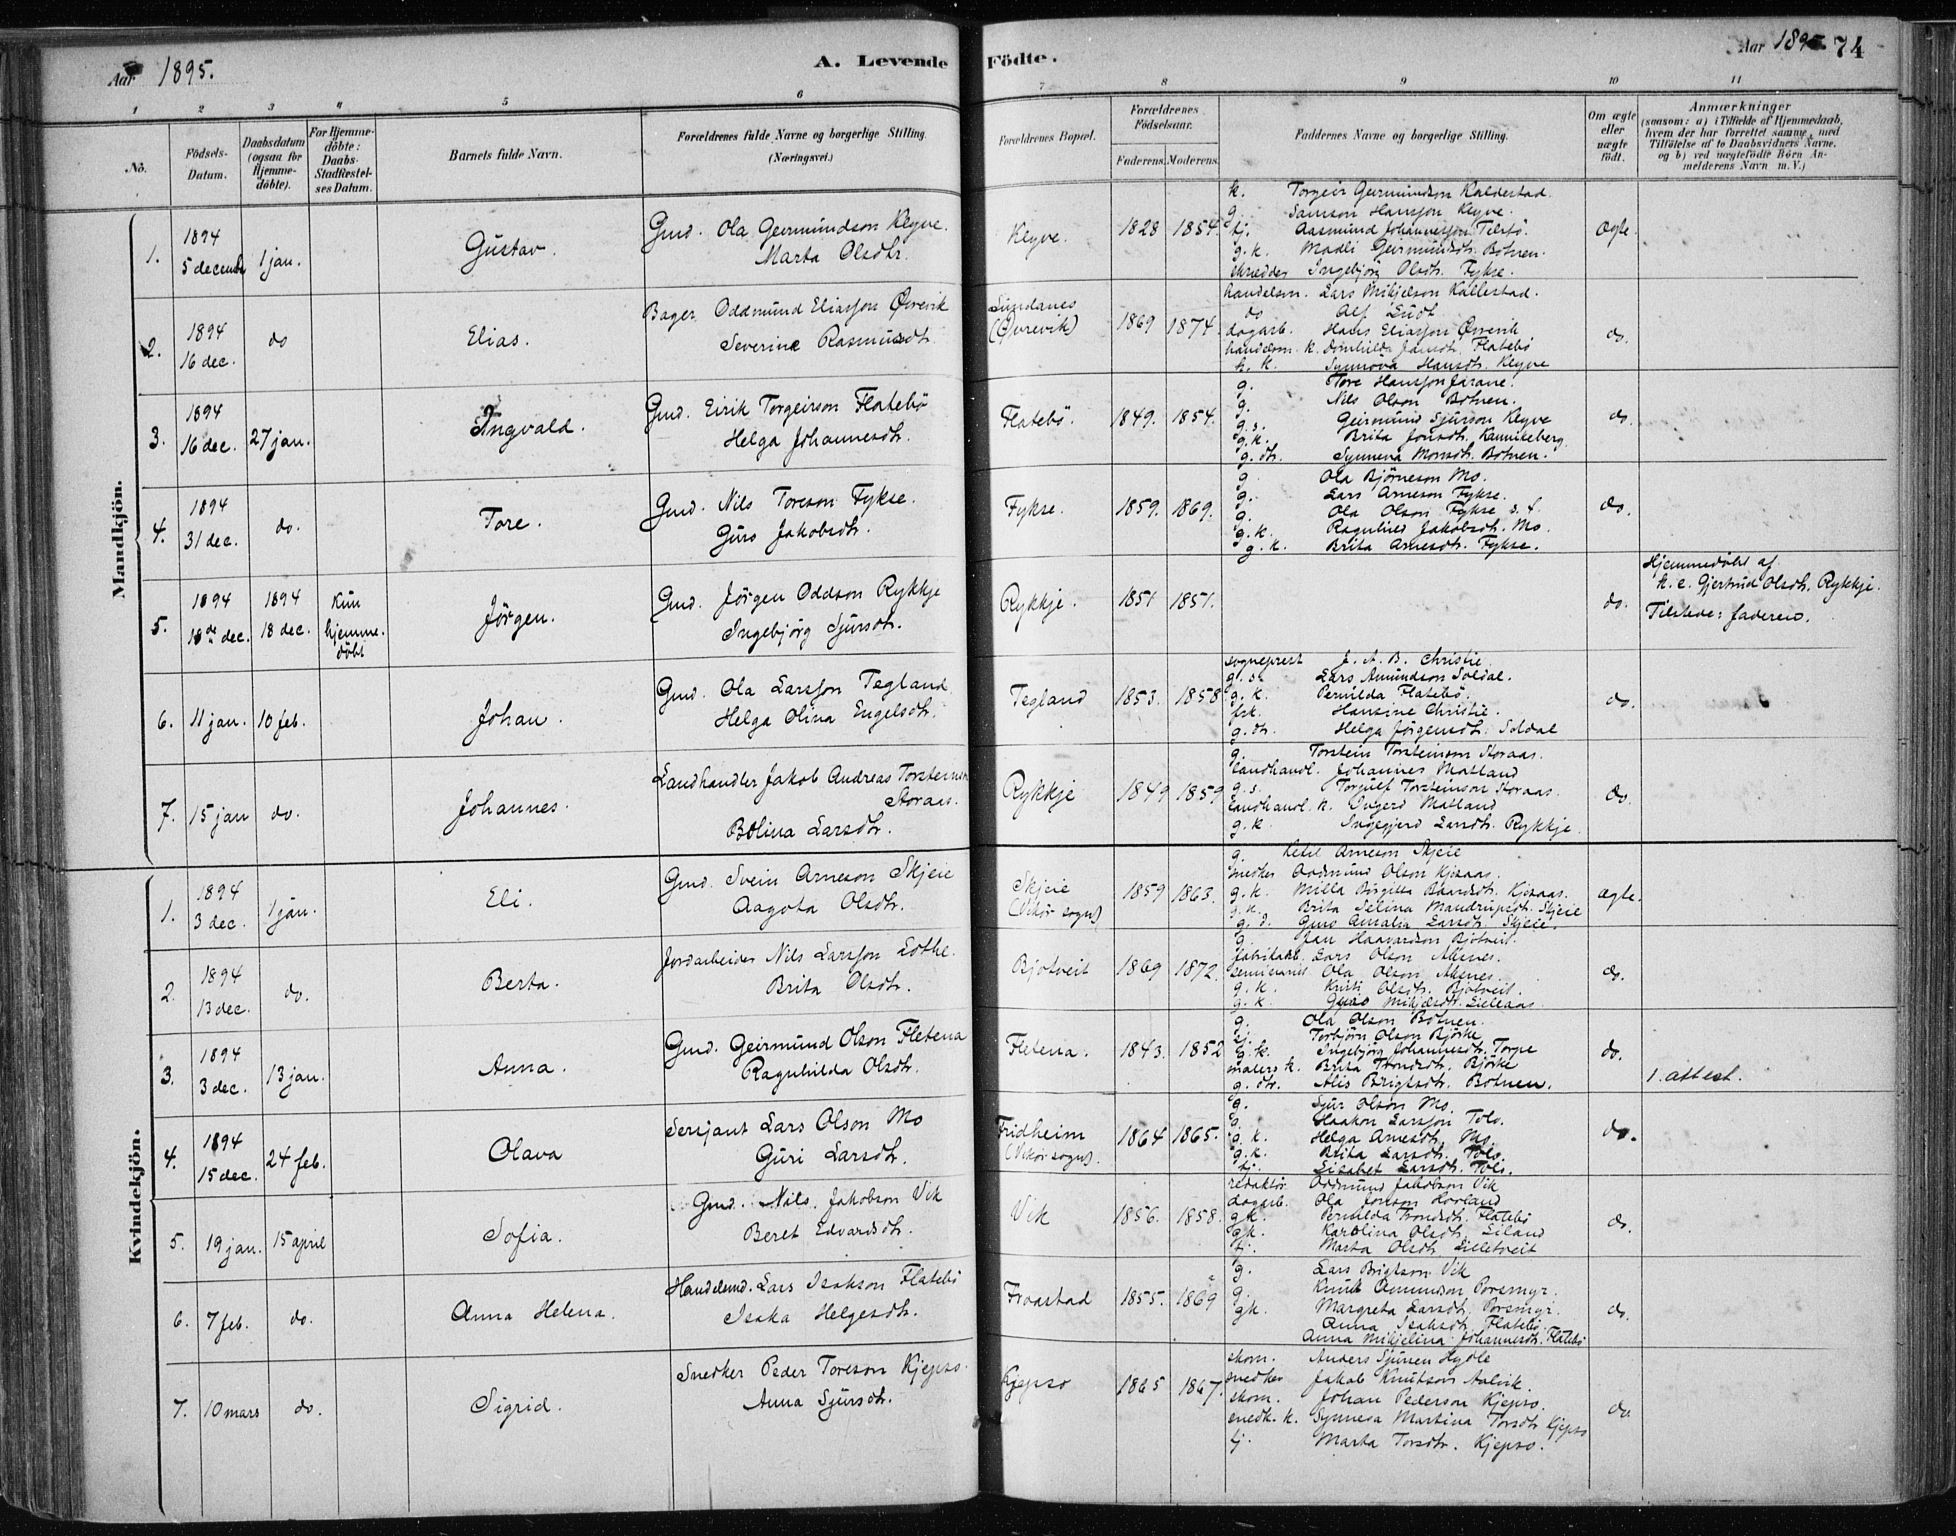 Aar 1895.
A. Levende Födte.
Aar 1895. 74
1 2 3 4 5 6 7 8 9 10 11
No.
Födsels-Datum.
Daabsdatum (ogsaa for Hjemme-döbte).
For Hjemme-döbte: Daabs-Stadfæstel-ses Datum.
Barnets fulde Navn.
Forældrenes fulde Navne og borgerlige Stilling. (Næringsvei.)
Forældrenes Bopæl.
Forældrenes Födselsaar.
Faderens. Moderens.
Faddernes Navne og borgerlige Stilling.
Om ægte eller uægte födt.
Anmærkninger
(saasom: a) i Tilfælde af Hjemmedaab,
hvem der har forrettet samme, med
Tilföielse af to Daabsvidners Navne,
og b) ved uægtefödte Börn An-
melderens Navn m. V.)
Mandkjön.
1. 1894 5 decemb 1 jan. Gustav. Gmd. Ola Geirmundson Klyve. Marta Olsdtr. Klyve. 1828 1854. ægte.
k. Torgeir Geirmundson Kaldestad
g. Samson Hansson Klyve.
tj. Aasmund Johannesson Telsfö.
g. k. Madli Geirmundsdtr. Botnen.
skredder Ingebjörg Olsdtr. Fykse.
2. 1894 16 dec. do Elias. Bager Oddmund Eliasson Övrevik Severine Rasmusdtr. Sundanes (Övrevik) 1869 1874. do.
handelsm. Lars Mikjelson Kallestad.
do Alf Ludt
dagarb. Hans Eliasson Övrevik
handelsm. k. Domhilda Jansdtr. Flatebö
h. k. Synnöva Hansdtr. Klyve
3. 1894 16 dec. 27 jan. Ingvald. Gmd. Eirik Torgeirson Flatebö Helga Johannesdtr. Flatebö. 1849. 1854. do.
g. Tore Hansson Jarane.
g. Nils Olson Botnen.
g. s. Geirmund Sjurson Klyve
g. k. Brita Jonsdtr. Kannikeberg.
g. dtr. Synneva Monsdtr. Botnen.
4. 1894 31 dec. do. Tore. Gmd. Nils Toreson Fykse. Guro Jakobsdtr. Fykse. 1859. 1869. do.
g. Ola Björneson Mo.
g. Lars Arneson Fykse.
g. Ola Olson Fykse s. f.
g. k. Ragnhild Jakobsdtr. Mo.
g. k. Brita Arnesdtr. Fykse.
5. 1894 18de dec. 1894 18 dec. Kun hjemme-döbt Jörgen. Gmd. Jörgen Oddson Rykkje Ingebjörg Sjursdtr. Rykkje. 1851 1851. do.
Hjemmedöbt af
k. e. Gjertrud Olsdtr. Rykkje.
Tilstede: faderen.
6. 11 jan. 10 feb. Johan. Gmd. Ola Larsson Tegland Helga Olina Engelsdtr. Tegland 1853. 1858 do.
sogneprest J. A. B. Christie.
g. s. Lars Amundson Soldal.
g. k. Pernilda Flatebö.
frk. Hansine Christie.
g. dtr. Helga Jörgensdtr. Soldal
7. 15 jan do. Johannes. Landhandler Jakob Andreas Torsteinson Storaas. Bolina Larsdtr. Rykkje 1849 1859 do.
g. Torstein Torsteinson Storaas.
landhandl. Johannes Matland
g. s. Torgulf Torsteinson Storaas.
landhandl. k. Ingerd Matland
g. k. Ingegjerd Larsdtr. Rykkje.
Kvindekjön.
1. 1894 3 dec. 1 jan. Eli. Gmd. Svein Arneson Skjeie Aagota Olsdtr. Skjeie (Vikör sogn) 1859 1863. ægte.
g. Ketil Arneson Skjeie
snedker Oddmund Olson Kjosaas.
g. k. Milla Birgitta Baardsdtr. Kjosaas.
g. k. Brita Selina Mandrupsdtr. Skjeie
g. d. Guro Amalia Larsdtr. Skjeie.
2. 1894 13 dec. do. Berta. Jordarbeider Nils Larsson Lothe. Brita Olsdtr. Bjotveit 1869 1872. do.
g. Jan Haavardson Bjotveit.
fabrikarb. Lars Olson Aksnes.
seminarist Ola Olson Aksnes.
g. k. Kristi Olsdtr. Bjotveit.
g. k. Guro Mikjelsdtr. Lillaas.
3. 1894 3 dec. 13 jan. Anna. Gmd. Geirmund Olson Fletena Ragnhilda Olsdtr. Fletena. 1843. 1852 do. 1. attest.
g. Ola Olson Botnen.
tj. Torbjörn Olson Björke
g. k. Ingebjörg Johannesdtr. Torpe
malers k. Brita Trondsdtr. Björke
g. dtr. Alis Brigtsdtr. Botnen.
4. 1894 15 dec. 24 feb. Olava Serjant Lars Olson Mo Guri Larsdtr. Fridheim (Vikör sogn). 1864 1865. do.
g. Sjur Olson Mo.
g. Haakon Larsson Tolo.
g. k. Helga Arnesdtr. Mo.
g. k. Brita Larsdtr. Tolo.
tj. Lisabet Larsdtr. Tolo.
5. 19 jan. 15 april Sofia. Gmd. Nils Jakobson Vik Beret Edvardsdtr. Vik 1856. 1858. do.
redaktör Oddmund Jakobson Vik
dagarb. Ola Jonson Hovland
gk. Pernilda Trondsdtr. Flatebö
gk. Karolina Olsdtr. Eiland
tj. Marta Olsdtr. Lilletveit
6. 7 feb. do. Anna Helena. Handelsmd. Lars Isakson Flatebö Isaka Helgesdtr. Froastad 1855. 1869 do.
g. Lars Brigtson Vik
g. Knut Amundson Porsmyr.
gk. Margreta Larsdtr. Porsmyr.
Anna Isaksdtr. Flatebö.
Anna Mikjelina Johannesdtr. Flatebö
7. 10 mars do. Sigrid. Snedker Peder Toreson Kjepso. Anna Sjursdtr. Kjepso 1865 1867. do
skom. Anders Sjursen Hydle
snedker Jakob Knutson Aalvik.
skom. Johan Pederson Kjepso.
snedk. k. Synneva Martina Torsdtr. Kjepso
tj. Marta Torsdtr. Kjepso.